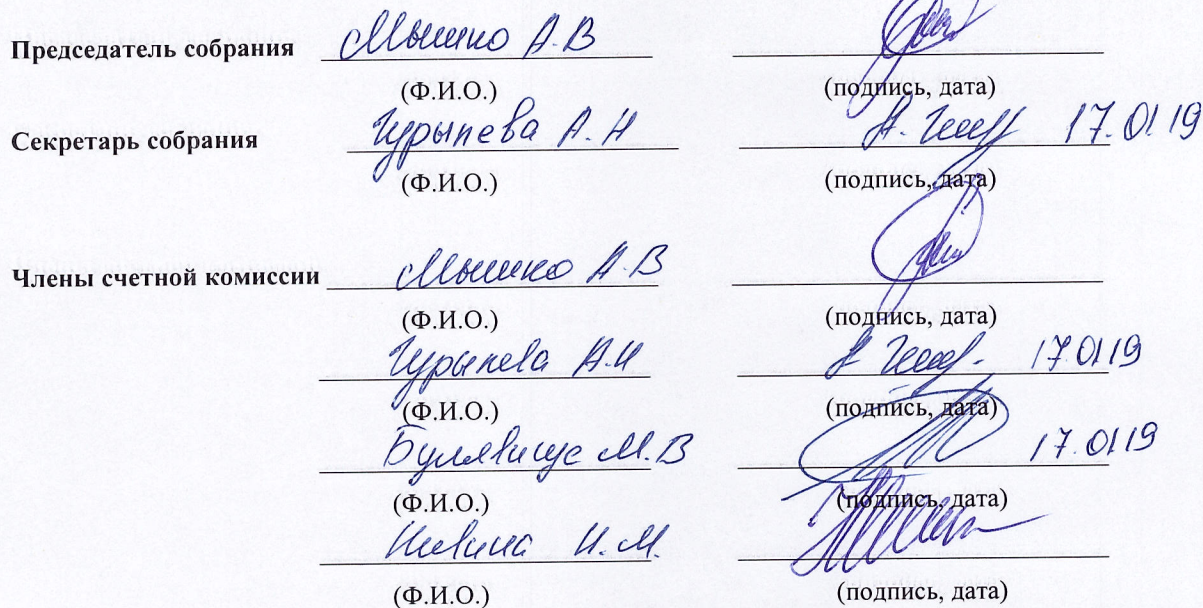 Председатель собрания Мышко А.В
(Ф.И.О.) (подпись, дата)
Секретарь собрания Гурылева А.Н 17.01.19
(Ф.И.О.) (подпись, дата)
Члены счетной комиссии Мышко А.В
(Ф.И.О.) (подпись, дата)
Гурылева А.Н 17.01.19
(Ф.И.О.) (подпись, дата)
Булявицус М.В 17.01.19
(Ф.И.О.) (подпись, дата)
И.М.
(Ф.И.О.) (подпись, дата)